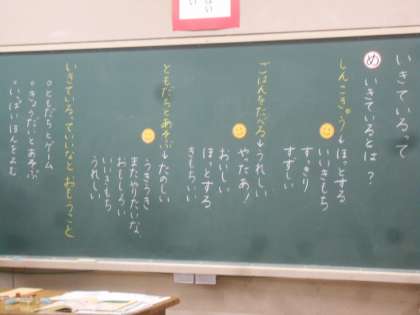 いきているって
め いきているとは？
しんこきゅう→ほっとする
いいきもち
すっきり
すずしい
ごはんをたべる→うれしい
やったあ！
おいしい
ほっとする
きもちいい
ともだちとあそぶ→たのしい
うきうき
またやりたいな
おもしろい
いいきもち
うれしい
いきているっていいなとおもうこと
○ともだちとゲーム
○きょうだいとあそぶ
○いっぱいほんをよむ